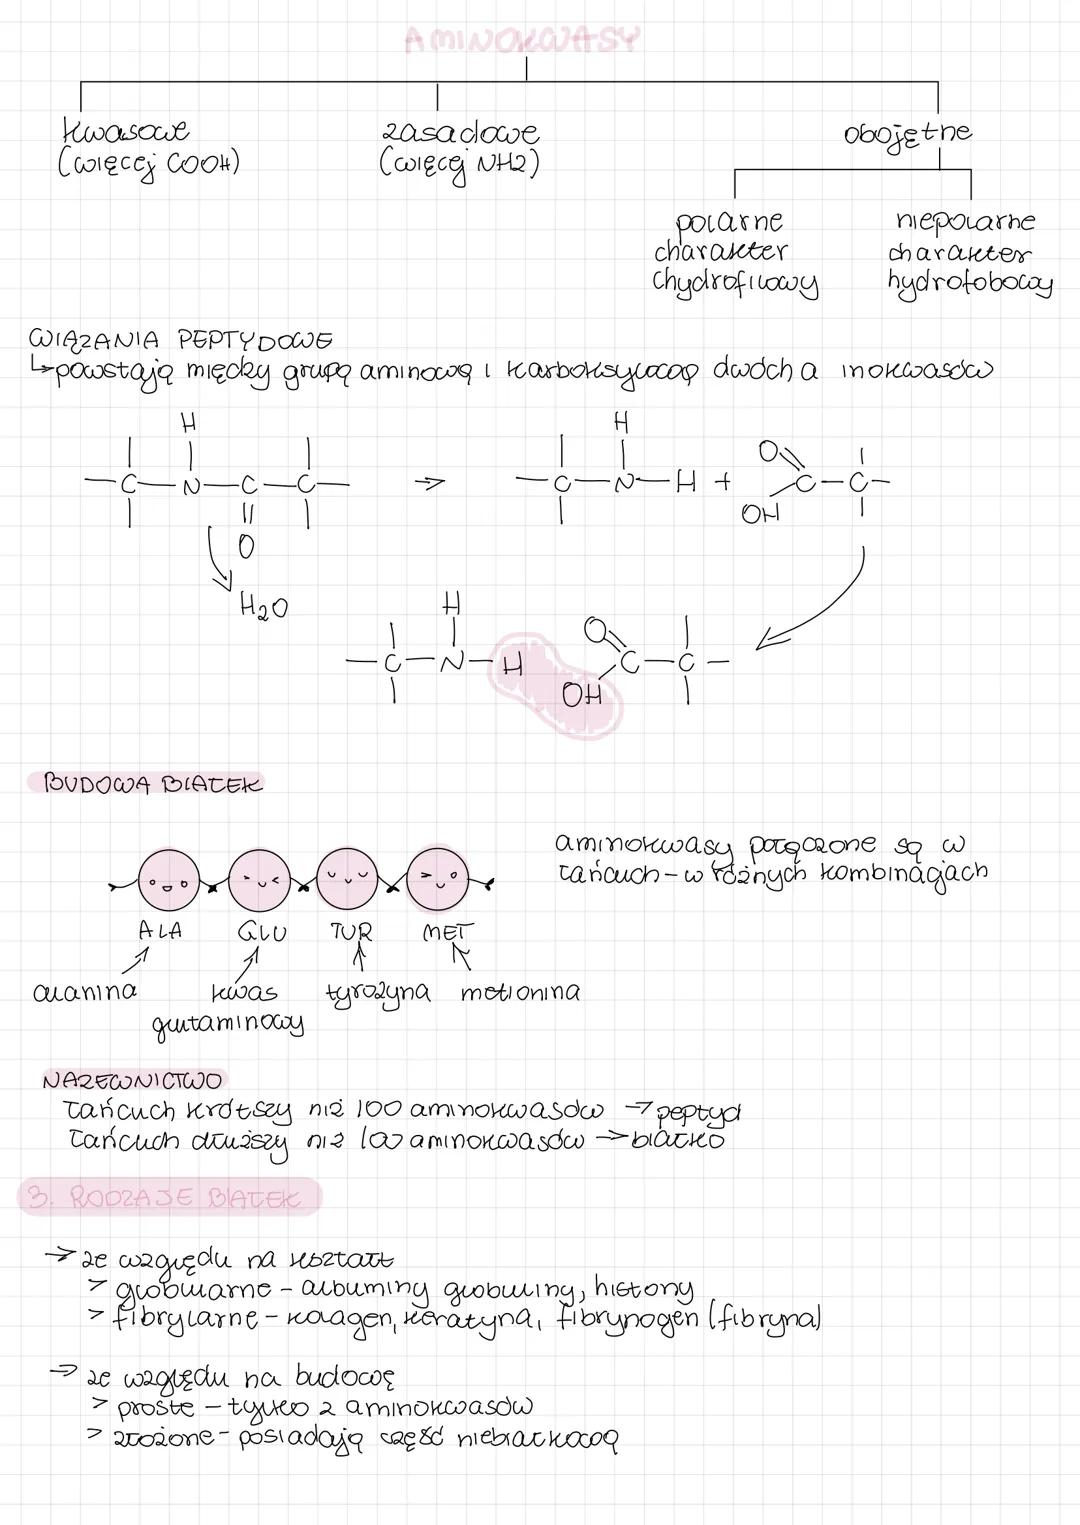 AMINOKWASY
kwasowe zasadowe obojętne
(więcej COOH) (więcej NH2)
polarne niepolarne
charakter charakter
chydrofilowy hydrofobowy
WIĄZANIA PEPTYDOWE
↳powstają między grupą aminową i karboksylową dwóch a inokwasów
H H
—C—N—C—C— → —C—N—H + O C—C—
O OH
H2O
H O
—C—N—H C—C—
OH
BUDOWA BIAŁEK
aminokwasy połączone są w
łańcuch - w różnych kombinacjach
ALA GLU TUR MET
alanina kwas tyrozyna metionina
glutaminowy
NAZEWNICTWO
łańcuch krótszy niż 100 aminokwasów → peptyd
łańcuch dłuższy niż 100 aminokwasów → białko
3. RODZAJE BIAŁEK
→ ze względu na kształt
> globularne - albuminy globuliny, histony
> fibrylarne - kolagen, keratyna, fibrynogen (fibryna)
→ ze względu na budowę
> proste - tylko z aminokwasów
> złożone - posiadają część niebiałkową